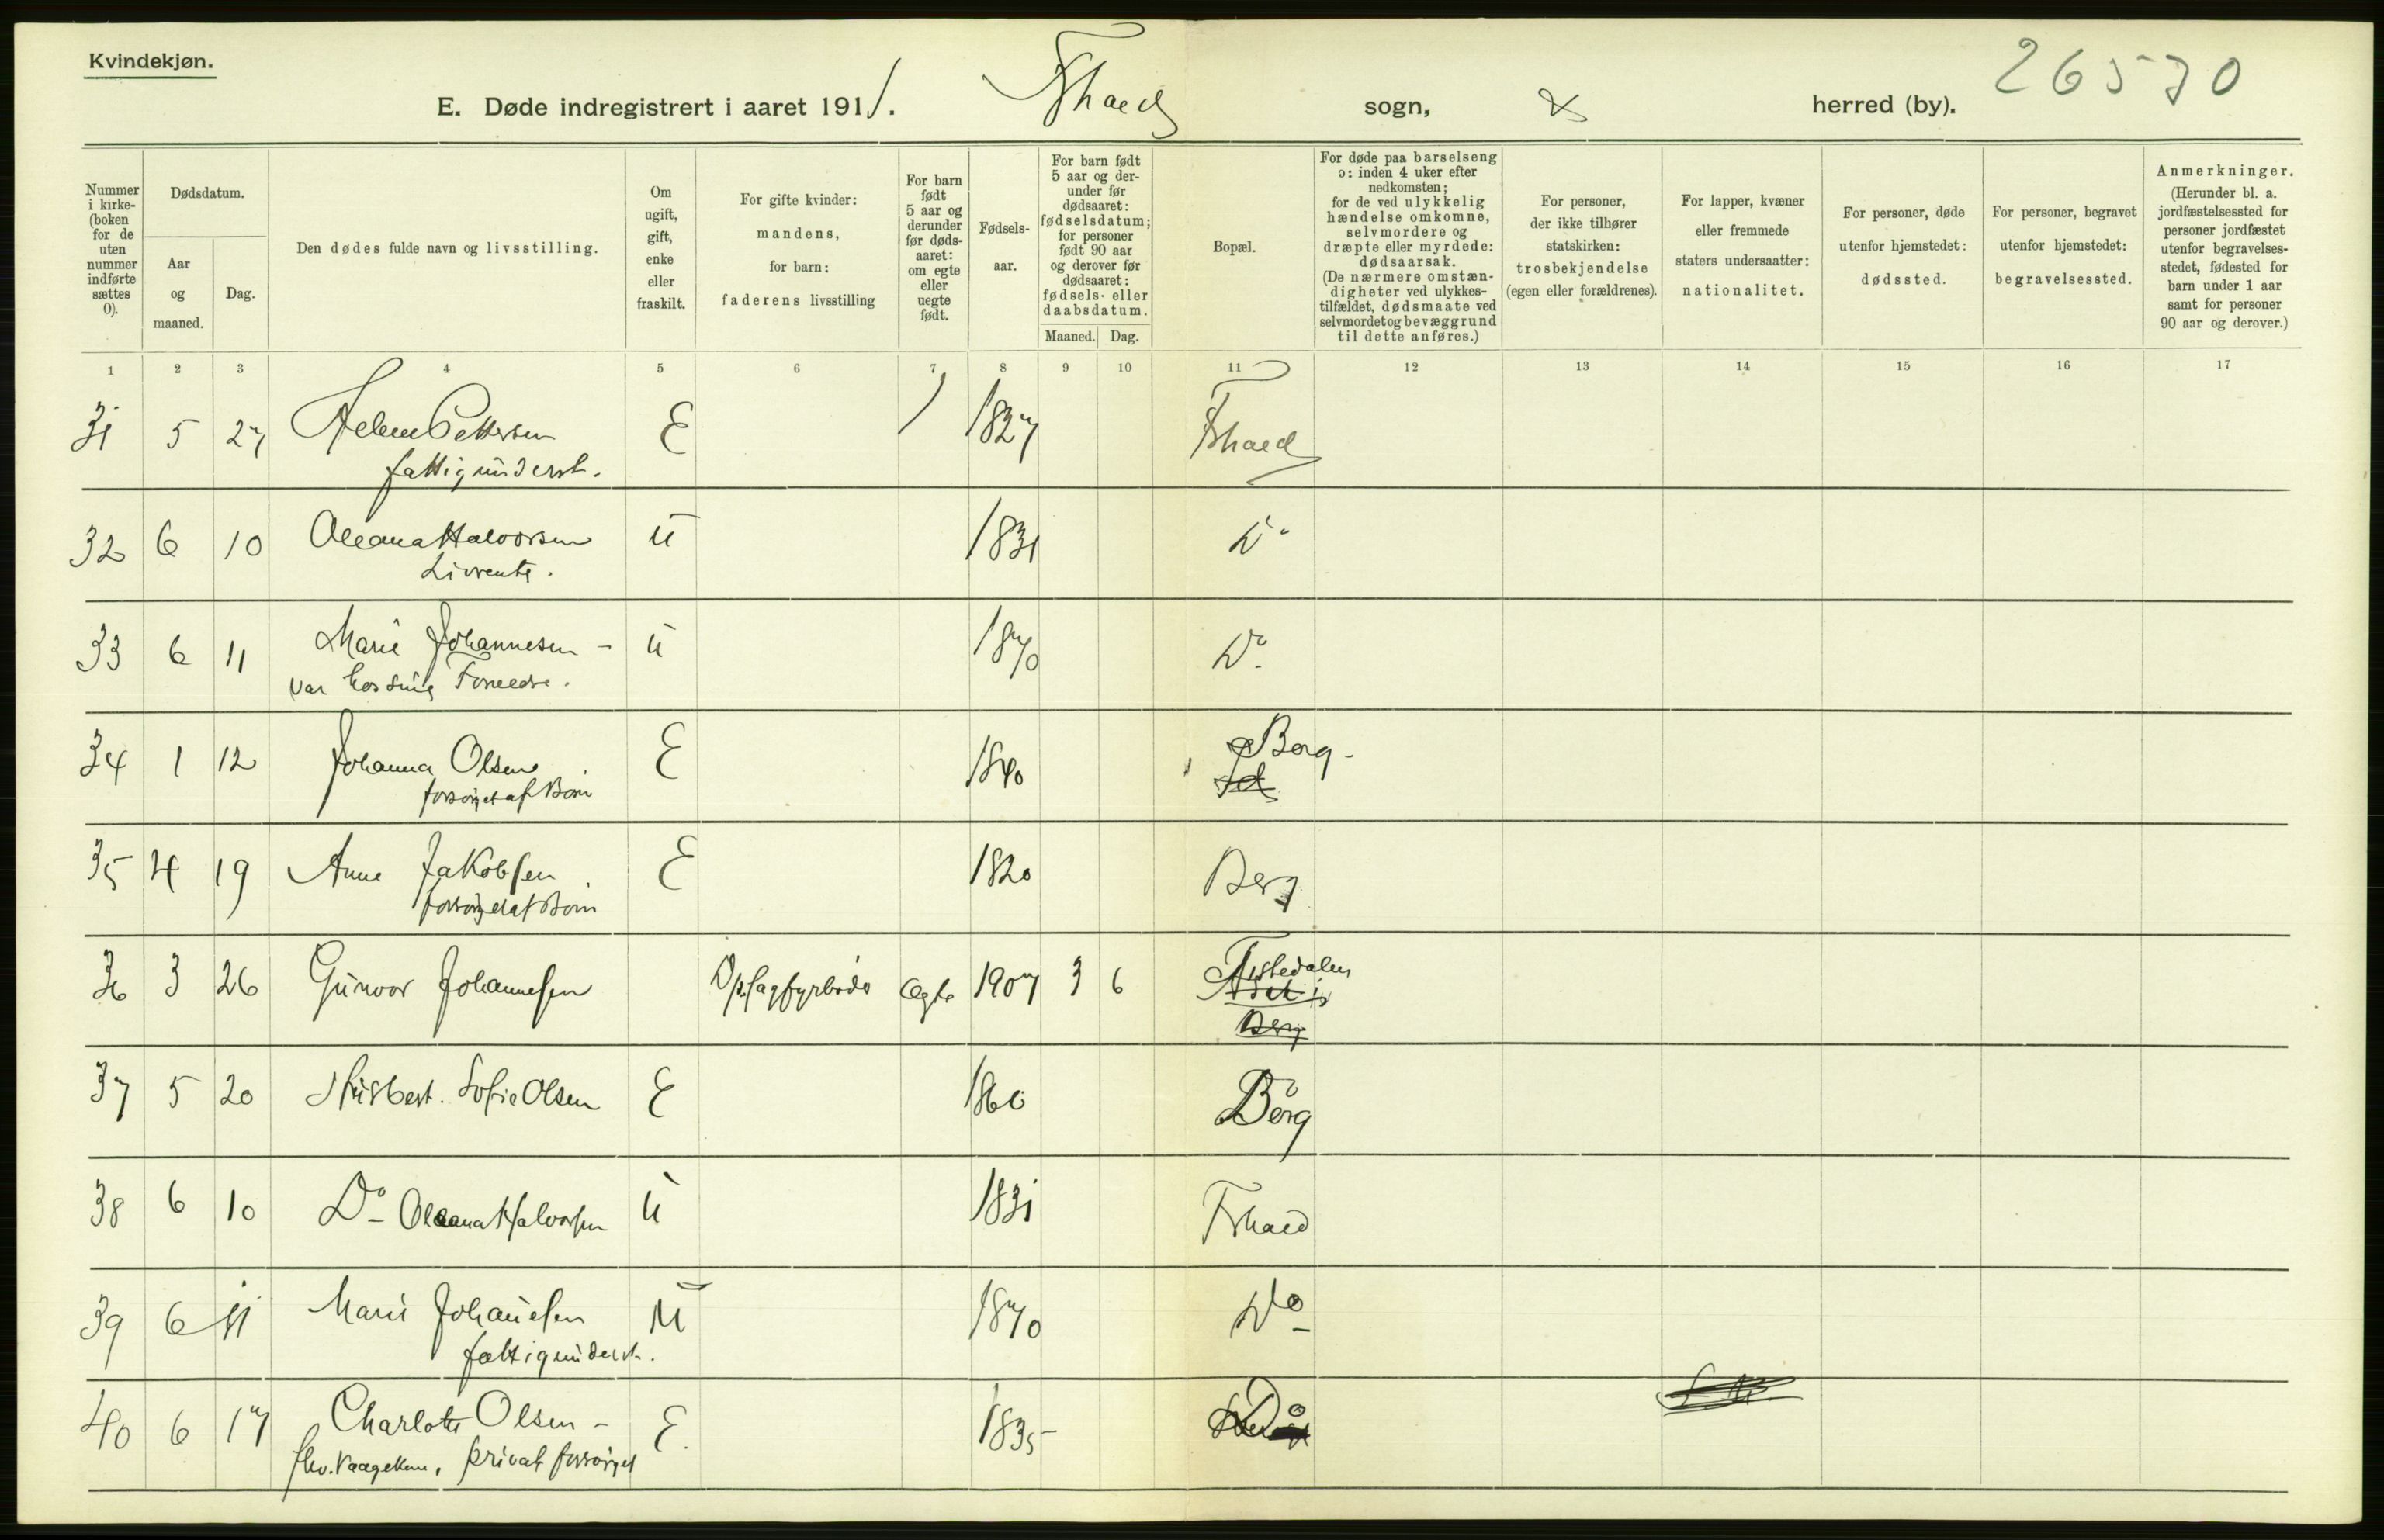 Kvindekjøn.
26570
E. Døde indregistrert i aaret 1911. Fhald sogn, & herred (by).
Nummer i kirke- (boken for de uten nummer indførte sættes 0).
Dødsdatum.
Aar og maaned.
Dag.
Den dødes fulde navn og livsstilling.
Om ugift, gift, enke eller fraskilt.
For gifte kvinder: mandens, for barn: faderens livsstilling
For barn født 5 aar og derunder før døds- aaret: om egte eller uegte født.
Fødsels- aar.
For barn født 5 aar og der- under før dødsaaret: fødselsdatum; for personer født 90 aar og derover før dødsaaret: fødsels- eller daabsdatum.
Maaned. Dag.
Bopæl.
For døde paa barselseng ɔ: inden 4 uker efter nedkomsten; for de ved ulykkelig hændelse omkomne, selvmordere og dræpte eller myrdede: dødsaarsak. (De nærmere omstæn- digheter ved ulykkes- tilfældet, dødsmaate ved selvmordet og bevæggrund til dette anføres.)
For personer, der ikke tilhører statskirken: trosbekjendelse (egen eller forældrenes).
For lapper, kvæner eller fremmede staters undersaatter: nationalitet.
For personer, døde utenfor hjemstedet: dødssted.
For personer, begravet utenfor hjemstedet: begravelsessted.
Anmerkninger. (Herunder bl. a. jordfæstelsessted for personer jordfæstet utenfor begravelses- stedet, fødested for barn under 1 aar samt for personer 90 aar og derover.)
1 2 3 4 5 6 7 8 9 10 11 12 13 14 15 16 17
31 5 27 Helene Pettersen E 1827 Fhald
fattigunderst.
32 6 10 Oleana Halvorsen U 1831 Do
Livrente.
33 6 11 Marie Johannesen - U 1870 Do
var hos sine Foreldre.
34 1 12 Johanna Olsen E 1840 Borg -
forsørget af Børn
35 4 19 Anne Jakobsen E 1820 Berg
forsørget af Børn
36 3 26 Gunvor Johannesen Dpsagfyrbøder Ægte 1907 3 6 Tistedalen
Berg
37 5 20 Husbest. Sofie Olsen E 1860 Borg
38 6 10 Do Oleana Halvorsen U 1831 Fhald
39 6 11 Marie Johannesen U 1870 Do
fattigunderst.
40 6 17 Charlotte Olsen - E. 1835 Do
fhv. Vaagekone, privat forsørget